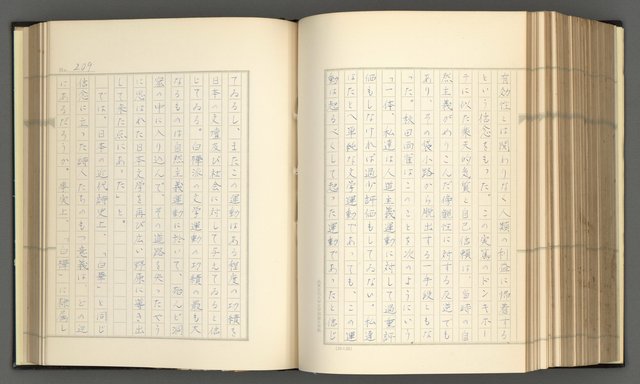 有効性とは関わりなく人類の利益に帰着する
という信念をもった。この実篤のドンキホー
テに似た楽天的気質と自己信頼は、当時の自
然主義がめりこんだ傍観性に対する反逆でも
あり、その袋小路から脱出する一手段ともな
った。秋田雨雀はこのことを次のようにいう。
「一体、私達は人道主義運動に対して過重評
価もしなければ過少評価もしてゐない。私達
はたとへ単純な文学運動であっても、この運
動は起るべくして起った運動であったと信じ
No. 209
てゐるし、またこの運動はある程度の功績を
日本の文壇及び社会に対して与えてゐると信
じてゐる。白樺派の文学運動の功績の最も大
なるものは自然主義運動に於いて、殆んど洞
窟の中に入り込んで、その進路を失ったやう
に思はれた日本文学を再び広い野原に導き出
して来た点にあった」と。
では、日本の近代詩史上、「白樺」と同じ
信念に立った詩人たちのもつ意義は、どの辺
にあるだろうか。事実上、「白樺」に隷属し